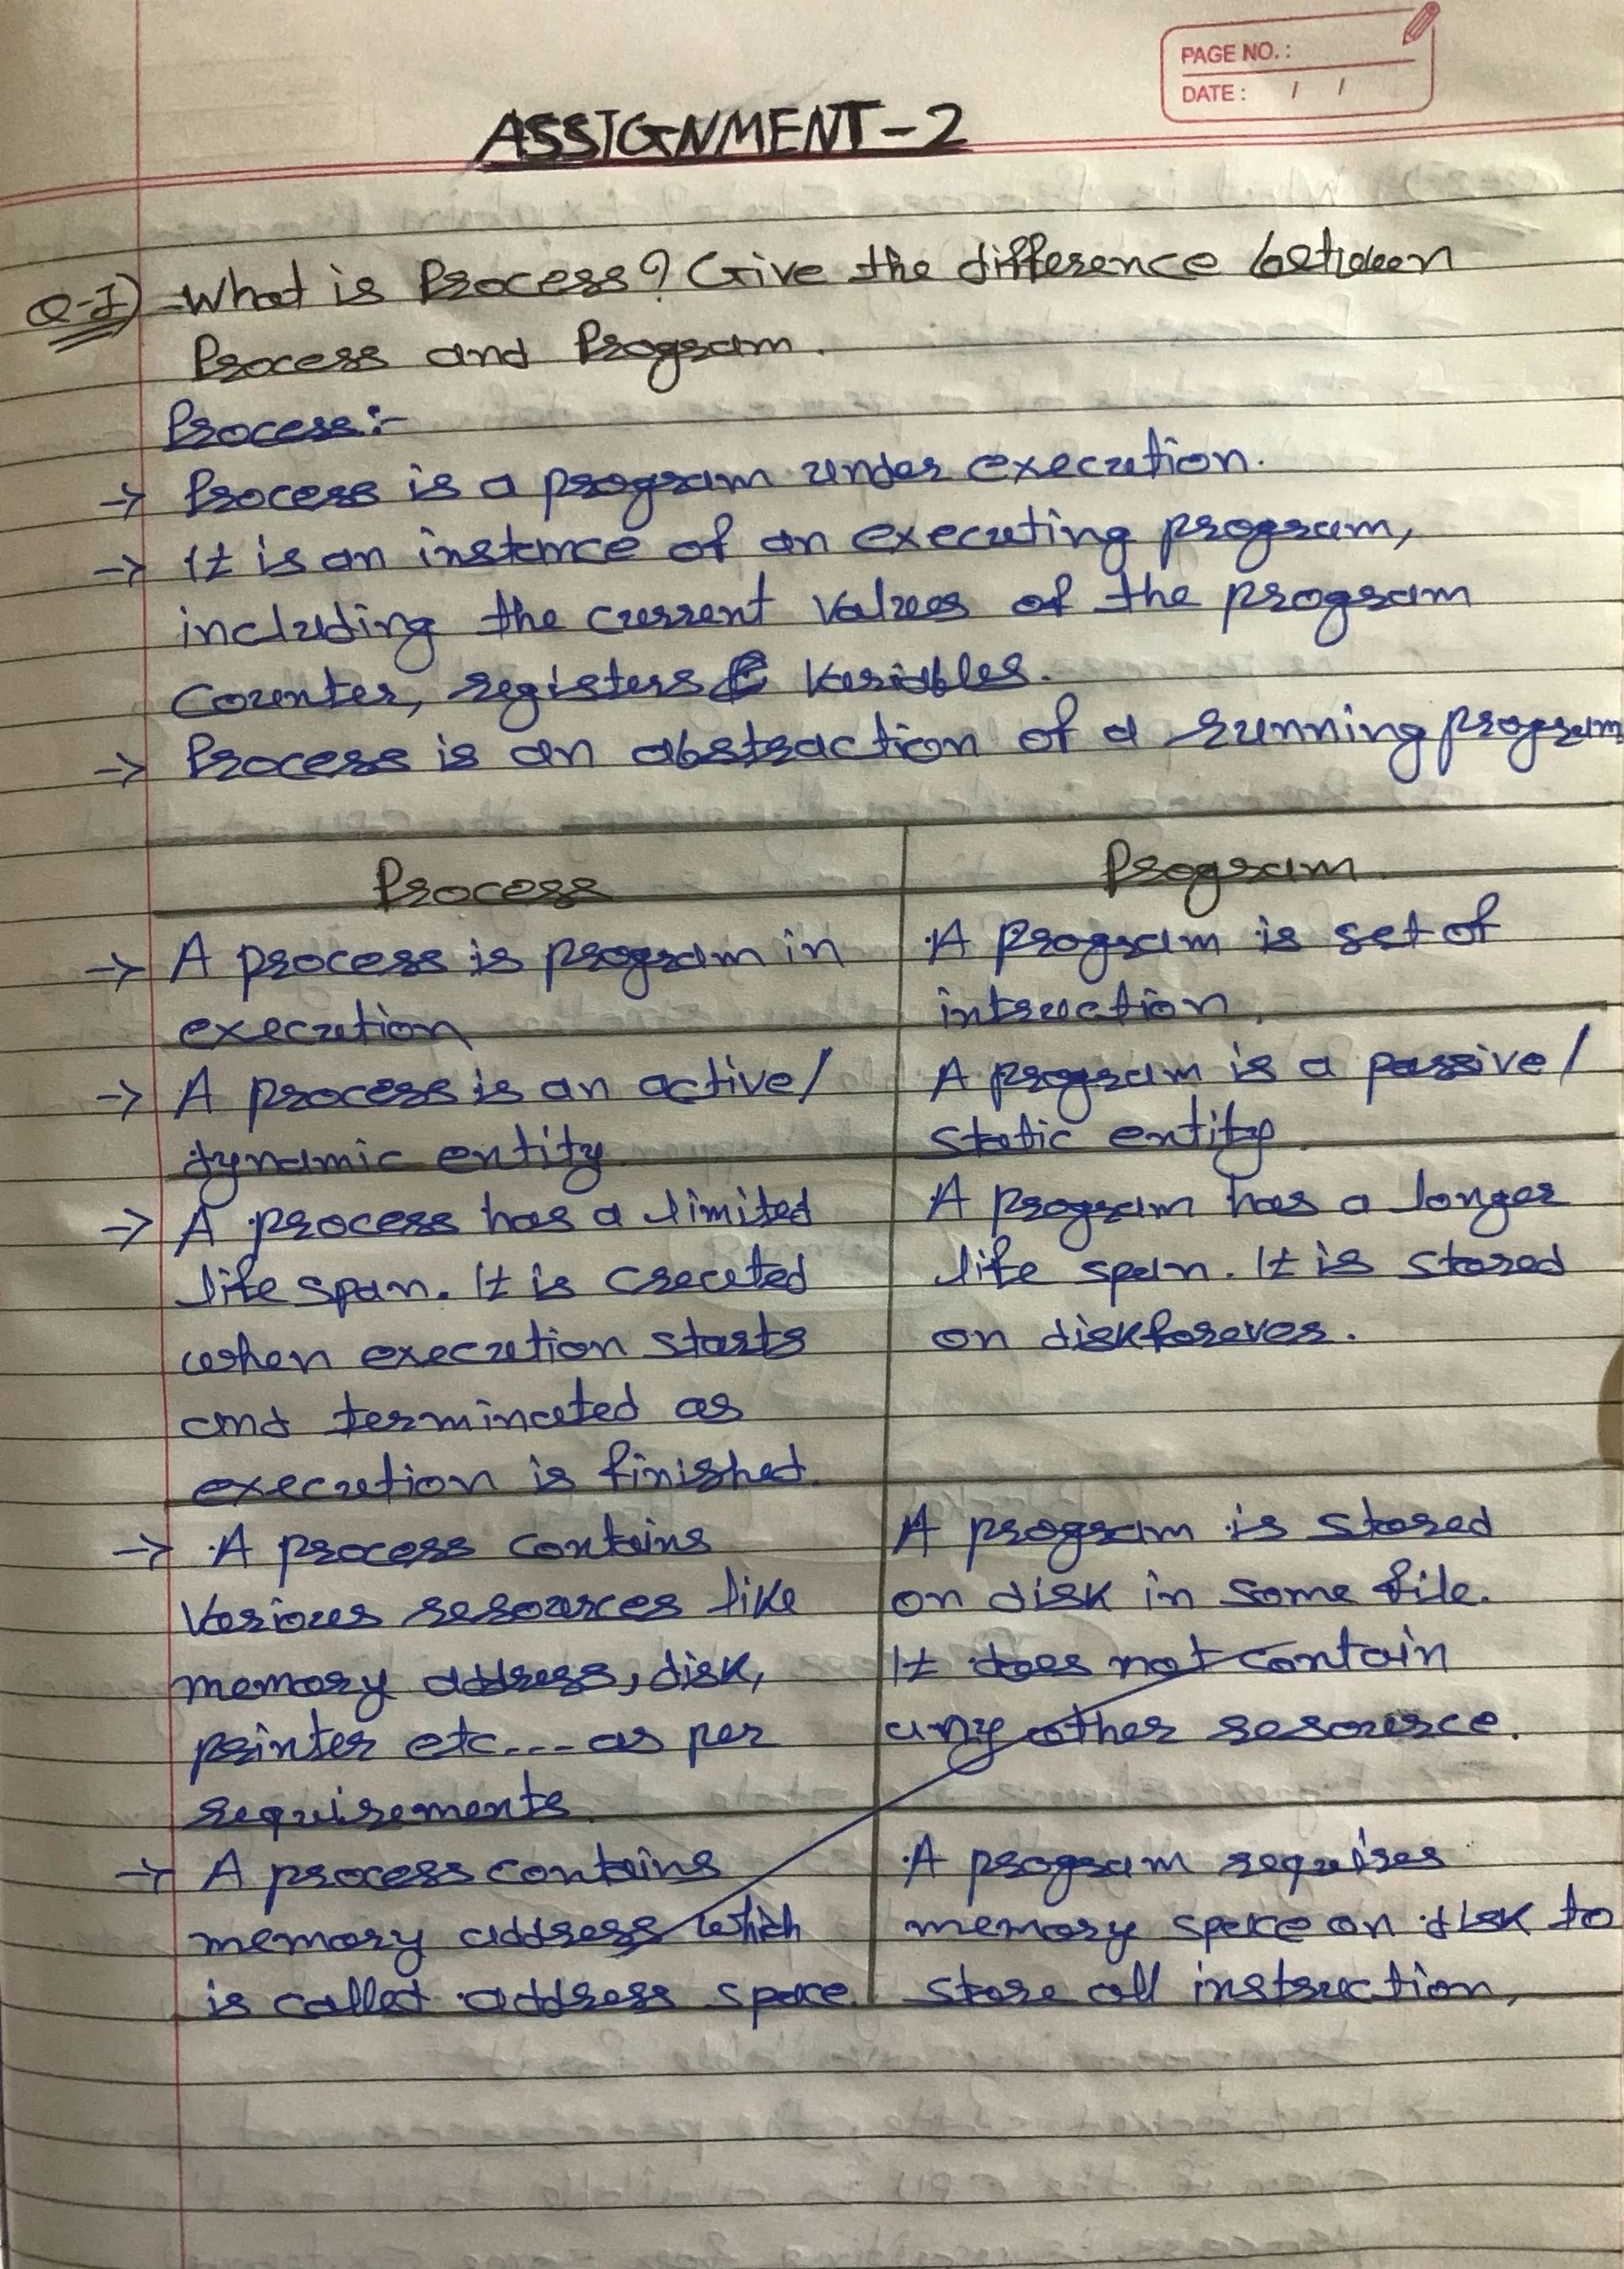 PAGE NO.:
DATE: / /
ASSIGNMENT-2
Q-1) What is Process? Give the difference between
Process and Program.
Process:-
→ Process is a program under execution.
→ It is an instance of an executing program,
including the current values of the program
counter, registers & variables.
→ Process is an abstraction of a running program
Process
Program
→ A process is program in
execution
A program is set of
intruction.
→ A process is an active/
dynamic entity
A program is a passive/
static entity.
→ A process has a limited
life span. It is created
when execution starts
and terminated as
execution is finished.
A program has a longer
life span. It is stored
on disk forever.
→ A process contains
various resources like
memory address, disk,
printer etc... as per
requirements.
A program is stored
on disk in some file.
It does not contain
any other resource.
→ A process contains
memory address which
is called address space.
A program requires
memory space on disk to
store all instruction.